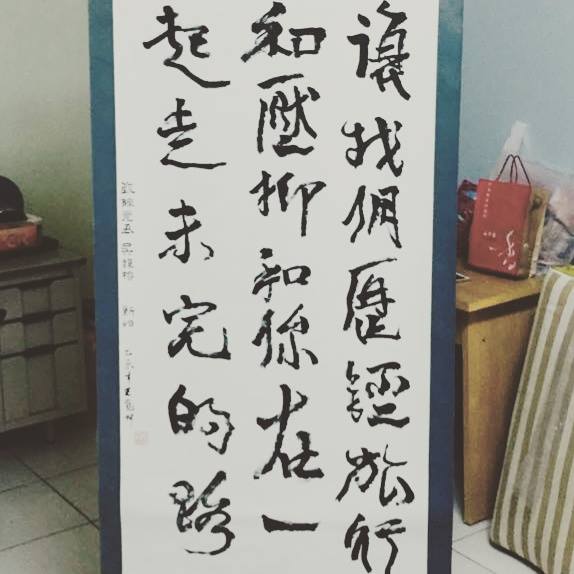 讓我們歷經旅行
和壓抑和你在一
起走未完的路